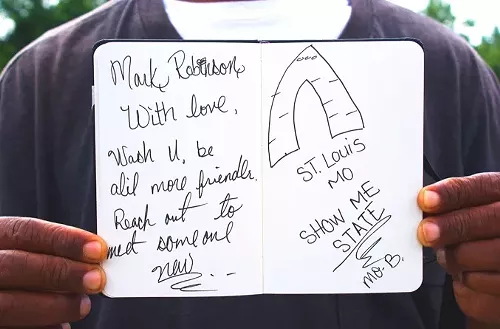 Mark Robinson
With love,
Wash U, be
alil more friendly.
Reach out to
meet someone
new...
ST. LOUIS
MO
SHOW ME
STATE
MO. B.